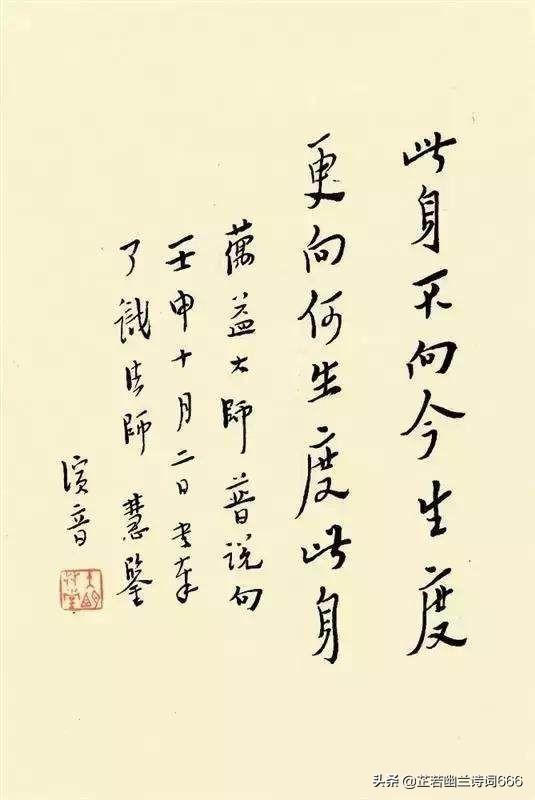 此身不向今生度
更向何生度此身
蕅益大師普說句
壬申十月二日書奉
了識法師 慧鑒
演音
头条 @芷若幽兰诗词666